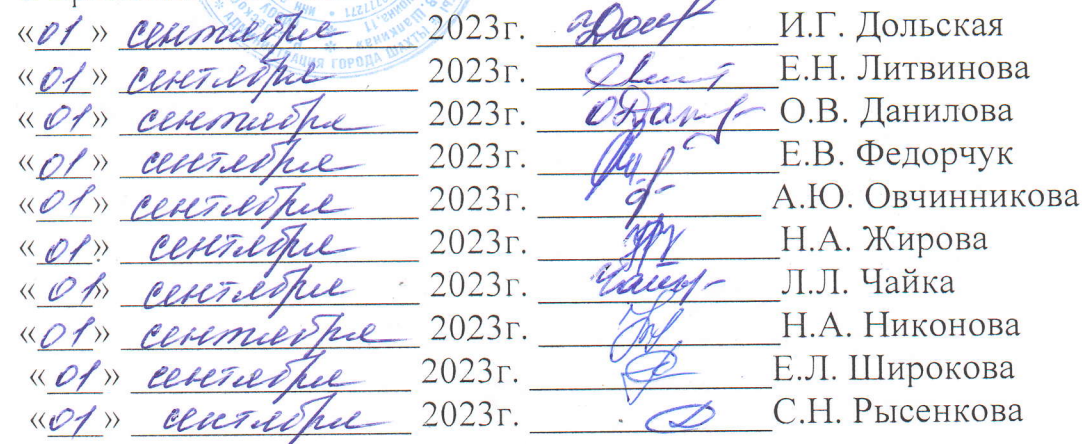 «01» сентября 2023г. И.Г. Дольская
«01» сентября 2023г. Е.Н. Литвинова
«01» сентября 2023г. О.В. Данилова
«01» сентября 2023г. Е.В. Федорчук
«01» сентября 2023г. А.Ю. Овчинникова
«01» сентября 2023г. Н.А. Жирова
«01» сентября 2023г. Л.Л. Чайка
«01» сентября 2023г. Н.А. Никонова
«01» сентября 2023г. Е.Л. Широкова
«01» сентября 2023г. С.Н. Рысенкова